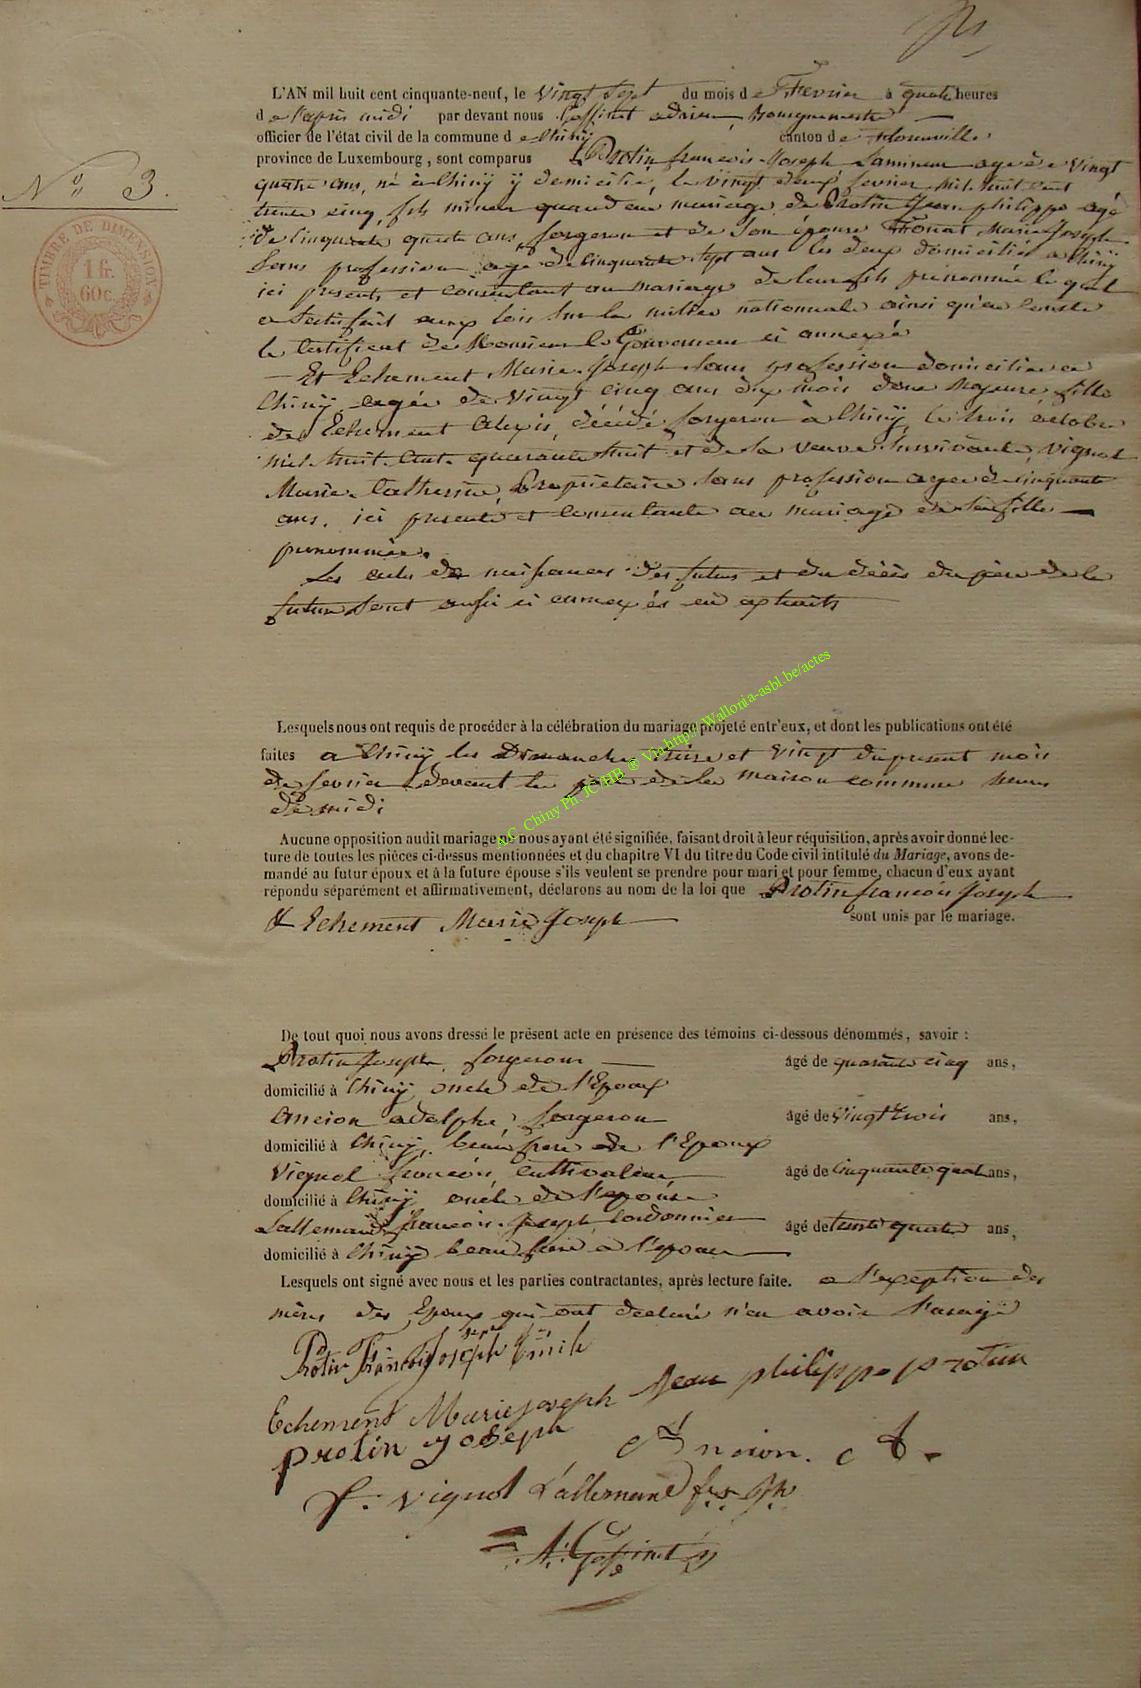 N° 3.
TIMBRE DE DIMENSION
1 fr.
60c.
L'AN mil huit cent cinquante-neuf, le vingt sept du mois de Fevrier à quatre heures
de l'après midi par devant nous Goffinet adrien, Bourguemestre
officier de l'état civil de la commune de Chiny canton de Florenville
province de Luxembourg, sont comparus Protin françois-Joseph Lamineur agé de vingt
quatre ans, né à Chiny y demicilié, le vingt deux fevrier mil huit cent
trente cinq, fils mineur quand au mariage de Protin Jean philippe agé
de cinquante quatre ans, forgeron et de Son épouse Marie Joseph
Sans profession agé de cinquante sept ans les deux domiciliés a Chiny
ici presents et consentant au mariage de leur fils prenommé le quel
a Satisfait aux lois Sur la milice nationale ainsi qu'en conste
le Certificat de Monsieur le Gouverneur ci annexé
Et Echement Marie-Joseph Sans profession domiciliée a
Chiny agée de vingt cinq ans dix mois donc majeure, fille
de Echement Alexis, décédé forgeron à Chiny, le trois octobre
mil-huit-Cent-quarante huit et de la veuve Survivante, Vignol
Marie-Catherine, Propriétaire Sans profession agée de cinquante
ans. ici presente et Consentante au mariage de Sa fille
prenommée.
Les actes de naissances des futurs et du décès du père de la
future Sont aussi ci annexés en extraits
Lesquels nous ont requis de procéder à la célébration du mariage projeté entr'eux, et dont les publications ont été
faites a Chiny les Dimanches treize et vingt du present mois
de fevrier devant la porte de la maison commune heure
de midi
Aucune opposition audit mariage ne nous ayant été signifiée, faisant droit à leur réquisition, après avoir donné lec-
ture de toutes les pièces ci-dessus mentionnées et du chapitre VI du titre du Code civil intitulé du Mariage, avons de-
mandé au futur époux et à la future épouse s'ils veulent se prendre pour mari et pour femme, chacun d'eux ayant
répondu séparément et affirmativement, déclarons au nom de la loi que Protin françois Joseph
& Echement Marie Joseph sont unis par le mariage.
A.C. Chiny Ph JC HB ® Via http://Wallonia-asbl.be/actes
De tout quoi nous avons dressé le présent acte en présence des témoins ci-dessous dénommés, savoir :
Protin Joseph, forgeron âgé de quarante cinq ans,
domicilié à Chiny oncle de l'Epoux
Ancion adolphe, forgeron âgé de vingt trois ans,
domicilié à Chiny, beau frere de l'Epoux
Vignol françois, cultivateur âgé de cinquante quatre ans,
domicilié à Chiny oncle de l'epouse
Lallemand françois-Joseph, Cordonnier âgé de trente quatre ans,
domicilié à Chiny beau frere a l'epoux
Lesquels ont signé avec nous et les parties contractantes, après lecture faite. a l'exception des
mères des Epoux qui ont declaré n'en avoir l'usage
Protin François Joseph
Echement Marie joseph Jean philippe protin
protin joseph Ancion. A.
f. Vignol Lallemand fs. Jh
A. Goffinet